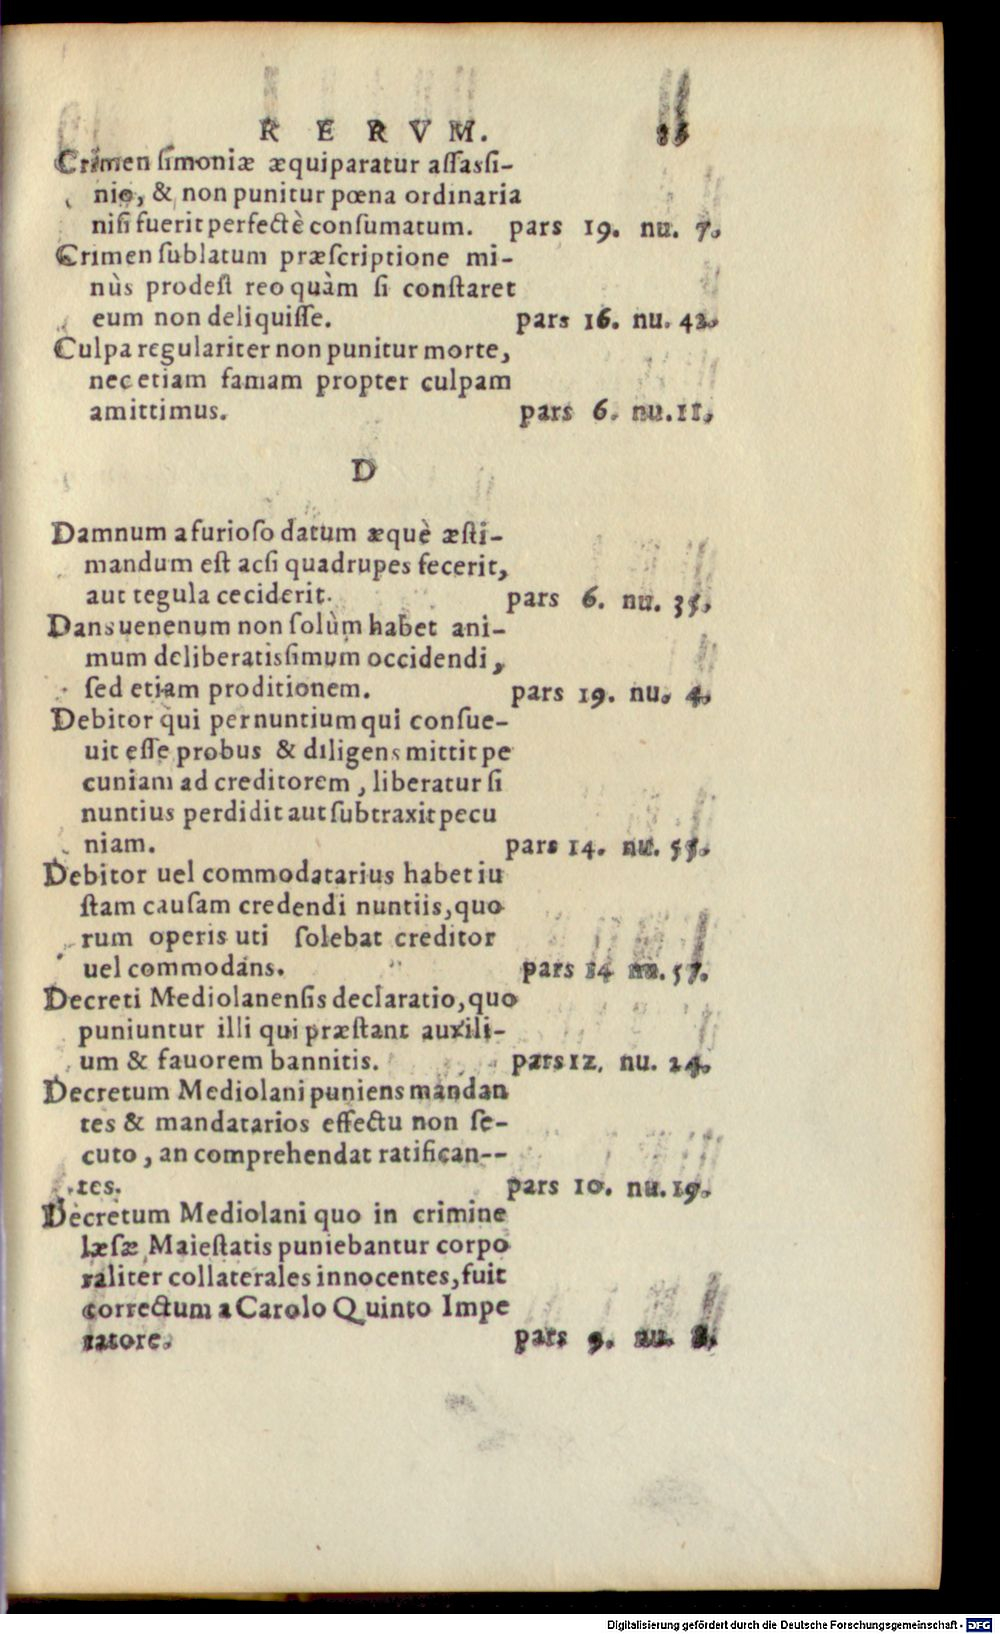 RERVM.
Crimen ſimoniæ æquiparatur aſſaſsi-
nio, & non punitur pœna ordinaria
niſi fuerit perfectè conſumatum. pars 19. nu. 7.
Crimen ſublatum præſcriptione mi-
nùs prodeſt reo quàm ſi conſtaret
eum non deliquiſſe. pars 16. nu. 42.
Culpa regulariter non punitur morte,
nec etiam famam propter culpam
amittimus. pars 6. nu. 11.
D
Damnum a furioſo datum æquè æſti-
mandum eſt acſi quadrupes fecerit,
aut tegula ceciderit. pars 6. nu. 35.
Dans uenenum non ſolùm habet ani-
mum deliberatiſsimum occidendi,
ſed etiam proditionem. pars 19. nu. 4.
Debitor qui per nuntium qui conſue-
uit eſſe probus & diligens mittit pe
cuniam ad creditorem, liberatur ſi
nuntius perdidit aut ſubtraxit pecu
niam. pars 14. nu. 55.
Debitor uel commodatarius habet iu
ſtam cauſam credendi nuntiis, quo
rum operis uti ſolebat creditor
uel commodans. pars 14 nu. 57.
Decreti Mediolanenſis declaratio, quo
puniuntur illi qui præſtant auxili-
um & fauorem bannitis. pars 12. nu. 24.
Decretum Mediolani puniens mandan
tes & mandatarios effectu non ſe-
cuto, an comprehendat ratifican--
tes. pars 10. nu. 19.
Decretum Mediolani quo in crimine
læſæ Maieſtatis puniebantur corpo
raliter collaterales innocentes, fuit
correctum a Carolo Quinto Impe
ratore. pars 9. nu.
Digitalisierung gefördert durch die Deutsche Forschungsgemeinschaft - DFG